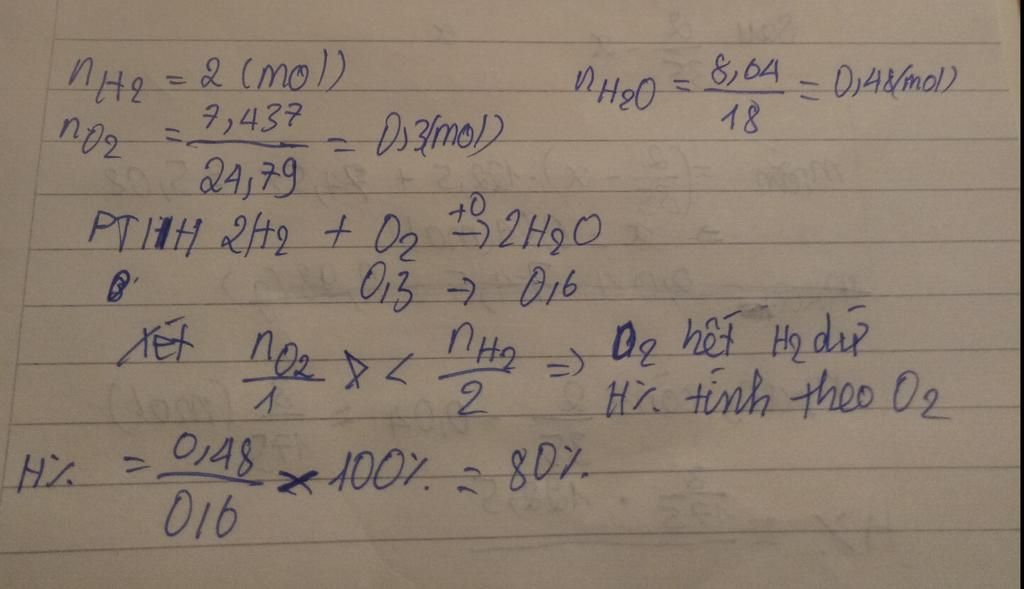 nH2 = 2 (mol)
nH2O = 8,64/18 = 0,48(mol)
nO2 = 7,437/24,79 = 0,3(mol)
PTHH 2H2 + O2 →(t0) 2H2O
0,3 → 0,6
Xét nO2/1 < nH2/2 => O2 hết H2 dư
H% tính theo O2
H% = 0,48/0,6 × 100% = 80%